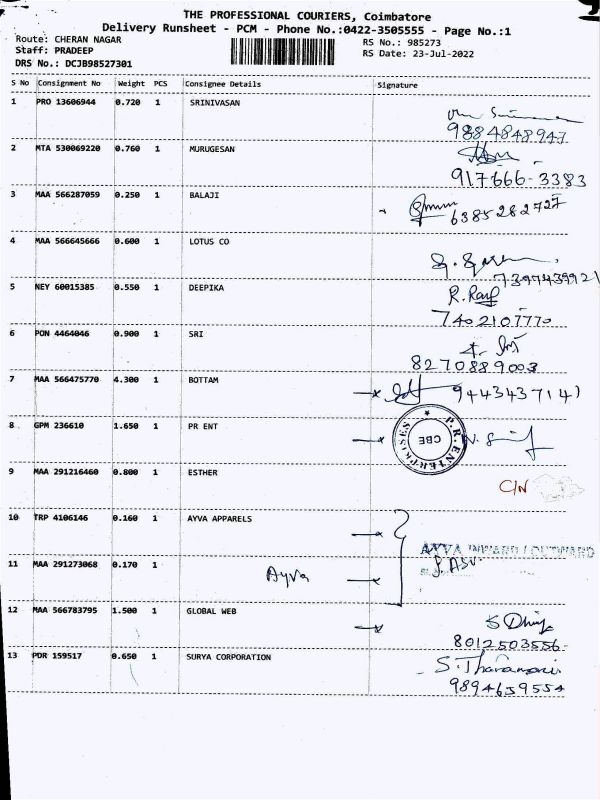 THE PROFESSIONAL COURIERS, Coimbatore
Delivery Runsheet - PCM - Phone No.:0422-3505555 - Page No.:1
Route: CHERAN NAGAR
Staff: PRADEEP
DRS No.: DCJB98527301
RS No.: 985273
RS Date: 23-Jul-2022
S No Consignment No Weight PCS Consignee Details Signature
1 PRO 13606944 0.720 1 SRINIVASAN
9884848947
2 MTA 530069220 0.760 1 MURUGESAN
917666-3383
3 MAA 566287059 0.250 1 BALAJI
6385282727
4 MAA 566645666 0.600 1 LOTUS CO
7397439921
5 NEY 60015385 0.550 1 DEEPIKA
R.Raj
7402107770
6 PON 4464046 0.900 1 SRI
8270889003
7 MAA 566475770 4.300 1 BOTTAM
9443437141
8 GPM 236610 1.650 1 PR ENT
P.R. ENTERPRISES
CBE
9 MAA 291216460 0.800 1 ESTHER
C/N
10 TRP 4106146 0.160 1 AYVA APPARELS
AYVA INWARD / OUTWARD
11 MAA 291273068 0.170 1
Ayva
12 MAA 566783795 1.500 1 GLOBAL WEB
8012503556
13 PDR 159517 0.650 1 SURYA CORPORATION
9894659554